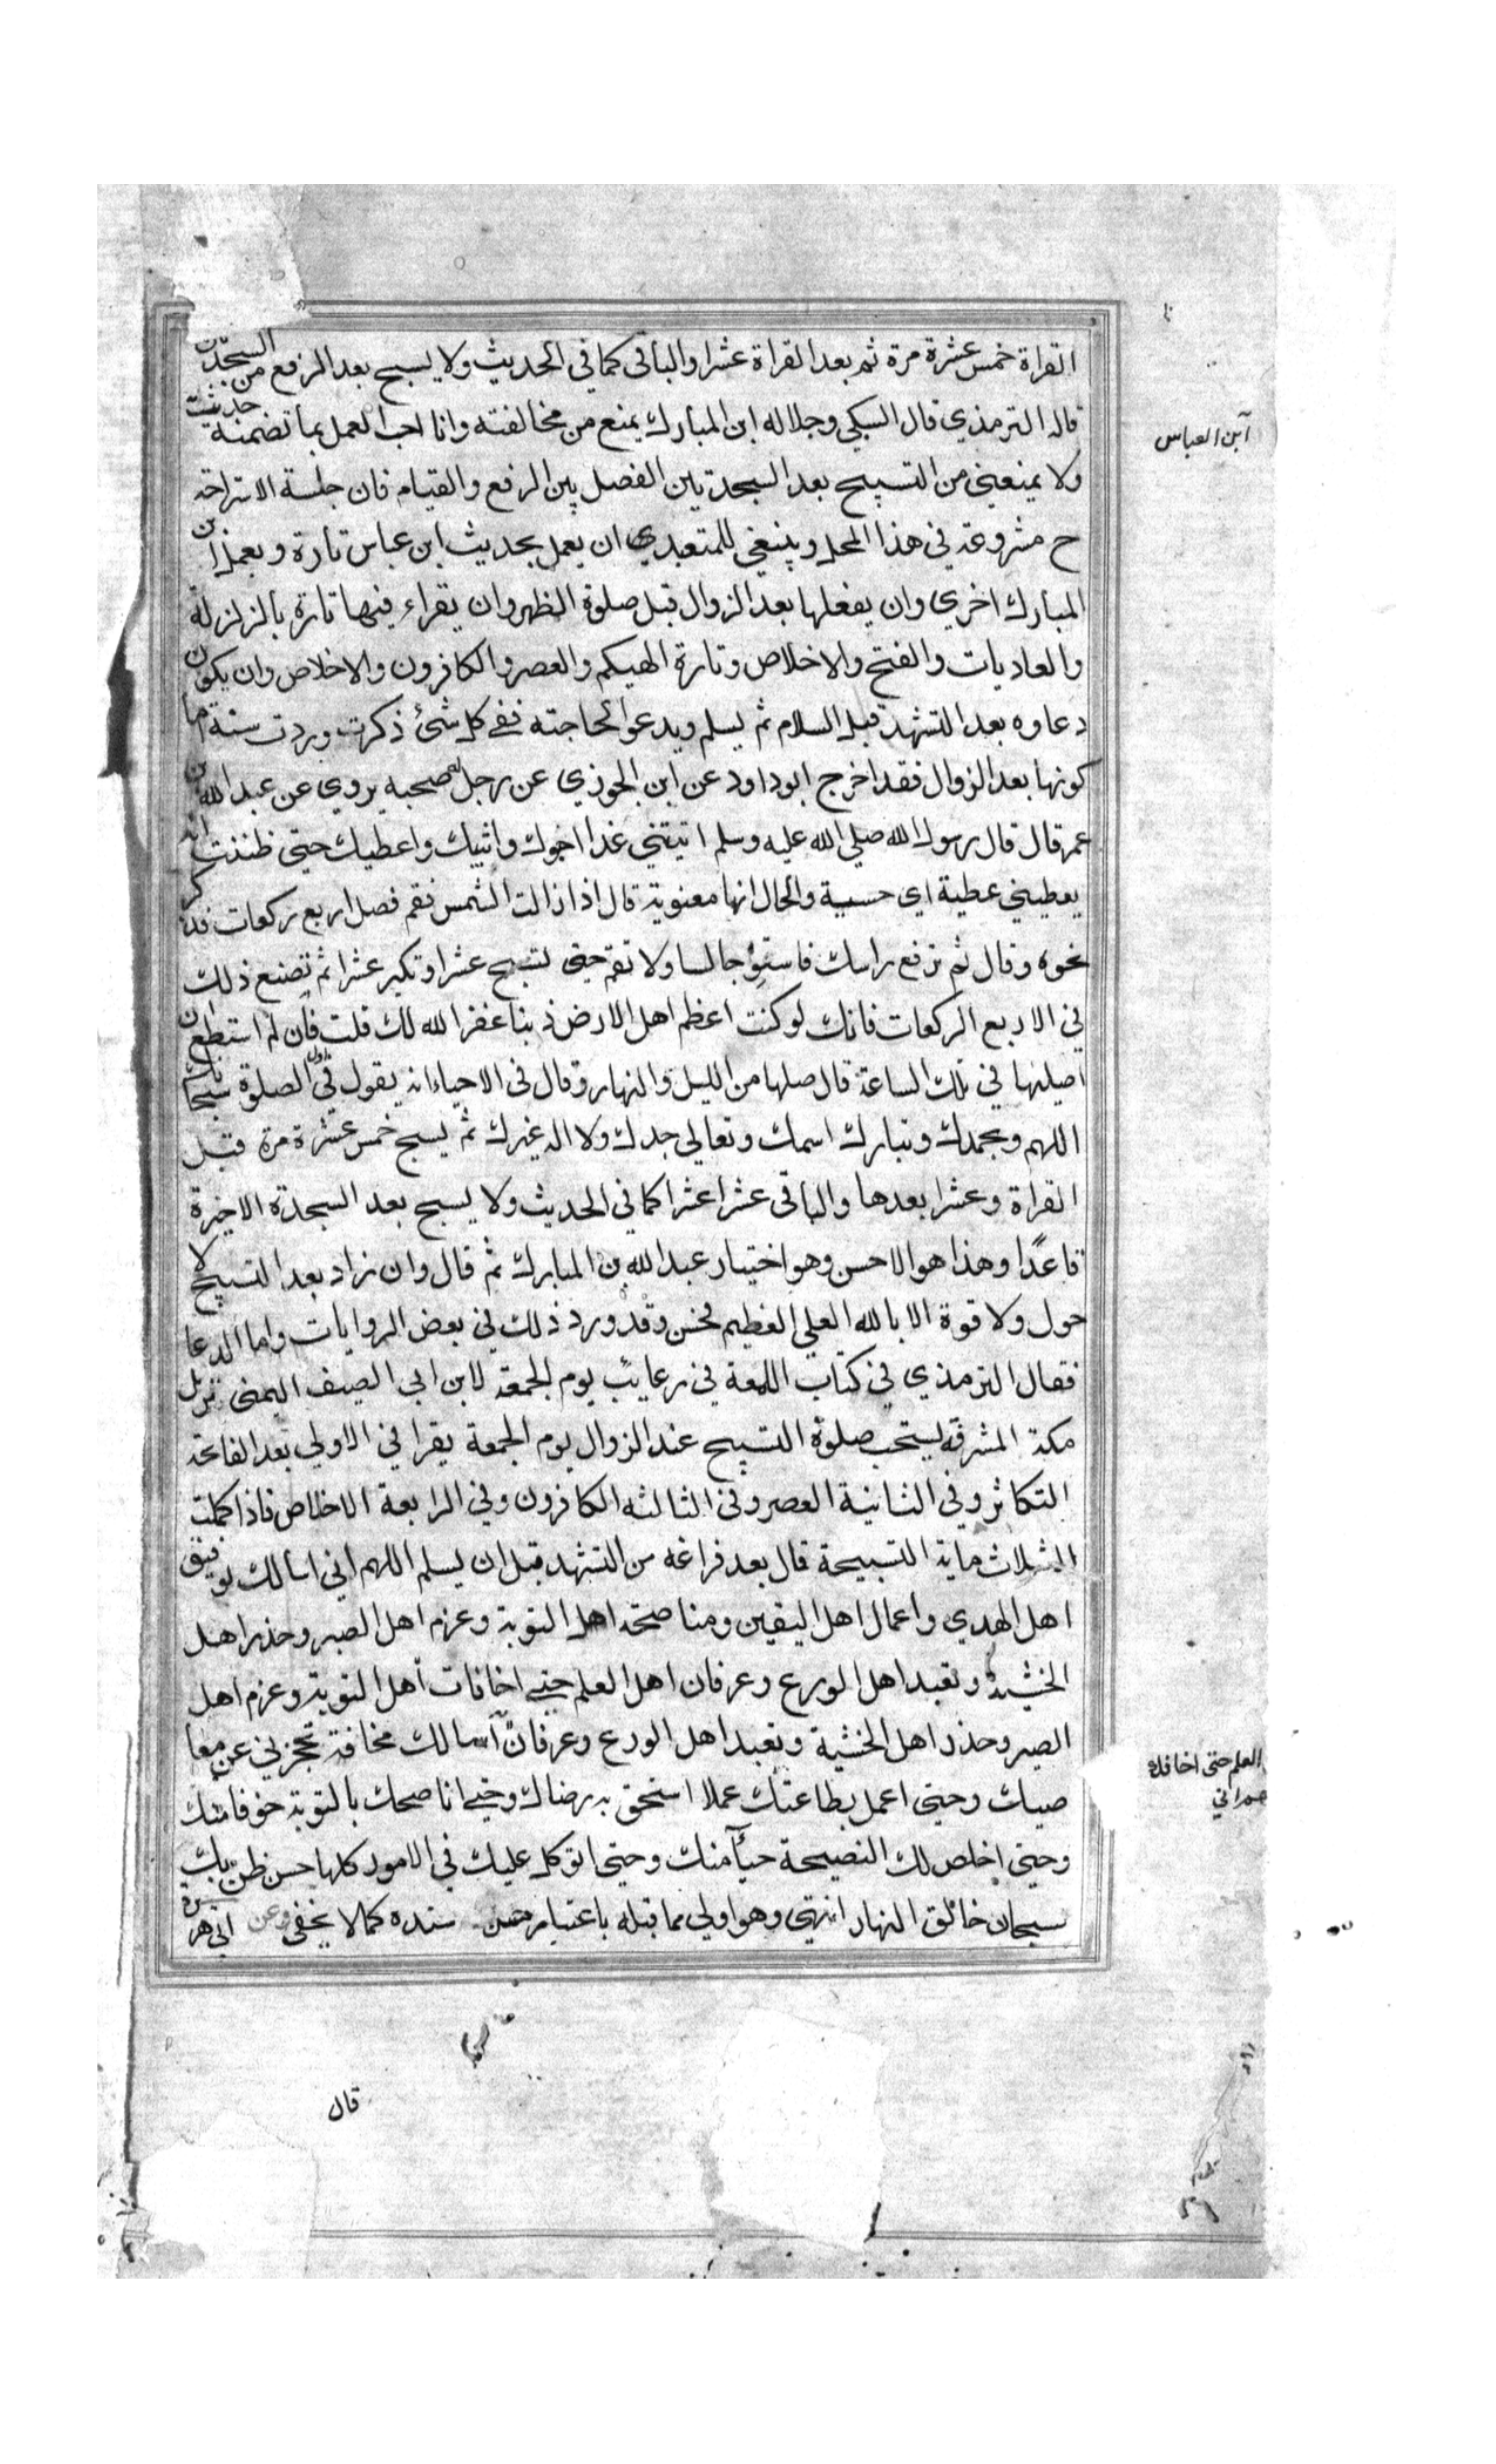 القراة خمس عشرة مرة ثم بعد القراة عشرا والباقى كما في الحديث ولا يسبح بعد الرفع من السجدتين
قاله الترمذي قال السبكي وجلالة ابن المبارك يمنع من مخالفته وانا احب العمل بما تضمنه حديث
ابن العباس
ولا يمنعني من التسبيح بعد السجدتين الفصل بين الرفع والقيام فان جلسة الاستراحة
ح مشروعة في هذا المحل وينبغي للمتعبدي ان يعمل بحديث ابن عباس تارة وبعمل ابن
المبارك اخري وان يفعلها بعد الزوال قبل صلوة الظهر وان يقراء فيها تارة بالزلزلة
والعاديات والفتح والاخلاص وتارة الهيكم والعصر والكافرون والاخلاص وان يكون
دعاوه بعد التشهد قبل السلام ثم يسلم ويدعوا لحاجته ففي كل شئ ذكرت وردت سنة اما
كونها بعد الزوال فقد اخرج ابو داود عن ابن الجوزي عن رجل له صحبه يروي عن عبد الله بن
عمر قال قال رسول الله صلي الله عليه وسلم اتيتني غدا احبوك واثيبك واعطيك حتي ظننت انه
يعطيني عطية اي حسية والحال انها معنوية قال اذا زالت الشمس فقم فصل اربع ركعات فذكر
نحوه وقال ثم ترفع راسك فاستو جالسا ولا تقم حتي تسبح عشرا وتكبر عشرا ثم تصنع ذلك
في الاربع الركعات فانك لو كنت اعظم اهل الارض ذنبا غفر الله لك قلت فان لم استطع ان
اصليها في تلك الساعة قال صلها من الليل والنهار وقال فى الاحياء انه يقول في اول الصلوة سبحانك
اللهم وبحمدك وتبارك اسمك وتعالي جدك ولا اله غيرك ثم يسبح خمس عشرة مرة قبل
القراة وعشرا بعدها والباقى عشرا عشرا كما في الحديث ولا يسبح بعد السجدة الاخيرة
قاعدًا وهذا هو الاحسن وهو اختيار عبد الله بن المبارك ثم قال وان زاد بعد التسبيح لا
حول ولا قوة الا بالله العلي العظيم فحسن وقد ورد ذلك في بعض الروايات واما الدعا
فقال الترمذي في كتاب اللمعة في رغايب يوم الجمعة لابن ابي الصيف اليمنى نزيل
مكة المشرفة يستحب صلوة التسبيح عند الزوال يوم الجمعة يقرا في الاولي بعد الفاتحة
التكاثر وفي الثانية العصر وفى الثالثه الكافرون وفي الرابعة الاخلاص فاذا كملت
الثلاث ماية التسبيحة قال بعد فراغه من التشهد قبل ان يسلم اللهم اني اسالك توفيق
اهل الهدي واعمال اهل اليقين ومناصحة اهل التوبة وعزم اهل الصبر وحذر اهل
الخشية وتعبد اهل الورع وعرفان اهل العلم حتي اخافات أهل التوبة وعزم اهل
الصبر وحذر اهل الخشية وتعبد اهل الورع وعرفان اسالك مخافة تحجزني عن معا
العلم حتى اخافك
صيك وحتي اعمل بطاعتك عملا استحق به رضاك وحتي اناصحك بالتوبة خوفا منك
وحتى اخلص لك النصيحة حيآء منك وحتى اتوكل عليك في الامور كلها حسن ظن بك
سبحان خالق النهار انتهي وهو اولي مما قبله باعتبار سنده كما لا يخفى وعن ابي هريرة
قال